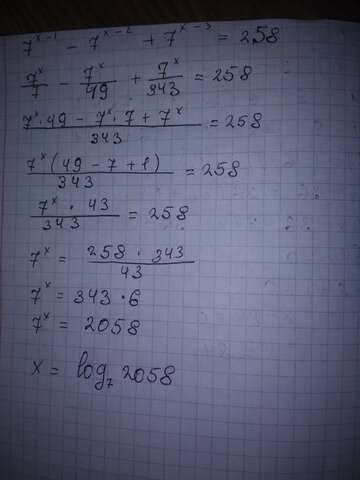 7^{x-1} - 7^{x-2} + 7^{x-3} = 258
\frac{7^x}{7} - \frac{7^x}{49} + \frac{7^x}{343} = 258
\frac{7^x \cdot 49 - 7^x \cdot 7 + 7^x}{343} = 258
\frac{7^x (49 - 7 + 1)}{343} = 258
\frac{7^x \cdot 43}{343} = 258
7^x = \frac{258 \cdot 343}{43}
7^x = 343 \cdot 6
7^x = 2058
x = log_7 2058